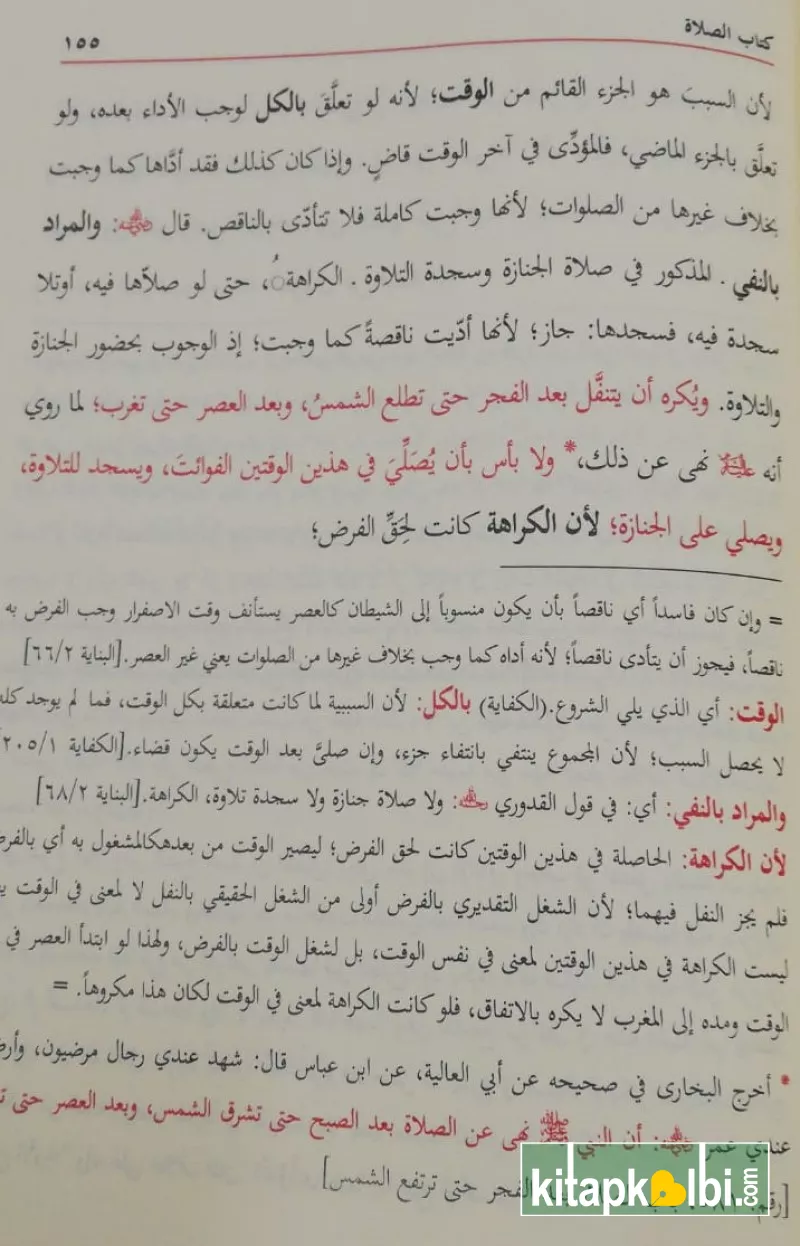 كتاب الصلاة
١٥٥
لأن السببَ هو الجزء القائم من الوقت؛ لأنه لو تعلَّقَ بالكل لوجب الأداء بعده، ولو
تعلَّق بالجزء الماضي، فالمؤدِّى في آخر الوقت قاضٍ. وإذا كان كذلك فقد أدَّاها كما وجبت
بخلاف غيرها من الصلوات؛ لأنها وجبت كاملة فلا تتأدّى بالناقص. قال رضي الله عنه: والمراد
بالنفي. المذكور في صلاة الجنازة وسجدة التلاوة. الكراهةُ، حتى لو صلاّها فيه، أوتلا
سجدة فيه، فسجدها: جاز؛ لأنها أدّيت ناقصةً كما وجبت؛ إذ الوجوب بحضور الجنازة
والتلاوة. ويُكره أن يتنفَّل بعد الفجر حتى تطلع الشمسُ، وبعد العصر حتى تغرب؛ لما روي
أنه عليه السلام نهى عن ذلك،* ولا بأس بأن يُصَلِّيَ في هذين الوقتين الفوائتَ، ويسجد للتلاوة،
ويصلي على الجنازة؛ لأن الكراهة كانت لِحَقِّ الفرض؛
= وإن كان فاسداً أي ناقصاً بأن يكون منسوباً إلى الشيطان كالعصر يستأنف وقت الاصفرار وجب الفرض به
ناقصاً، فيجوز أن يتأدى ناقصاً؛ لأنه أداه كما وجب بخلاف غيرها من الصلوات يعني غير العصر.[البناية ٦٦/٢]
الوقت: أي الذي يلي الشروع.(الكفاية) بالكل: لأن السببية لما كانت متعلقة بكل الوقت، فما لم يوجد كله
لا يحصل السبب؛ لأن المجموع ينتفي بانتفاء جزء، وإن صلىَّ بعد الوقت يكون قضاء.[الكفاية ٢٠٥/١]
والمراد بالنفي: أي: في قول القدوري رحمه الله: ولا صلاة جنازة ولا سجدة تلاوة، الكراهة.[البناية ٦٨/٢]
لأن الكراهة: الحاصلة في هذين الوقتين كانت لحق الفرض؛ ليصير الوقت من بعدهكالمشغول به أي بالفرض
فلم يجز النفل فيهما؛ لأن الشغل التقديري بالفرض أولى من الشغل الحقيقي بالنفل لا لمعنى في الوقت
ليست الكراهة في هذين الوقتين لمعنى في نفس الوقت، بل لشغل الوقت بالفرض، ولهذا لو ابتدأ العصر في
الوقت ومده إلى المغرب لا يكره بالاتفاق، فلو كانت الكراهة لمعنى في الوقت لكان هذا مكروهاً. =
* أخرج البخارى في صحيحه عن أبي العالية، عن ابن عباس قال: شهد عندي رجال مرضيون،
عندي عمر رضي الله عنه: أن النبي صلى الله عليه وسلم نهى عن الصلاة بعد الصبح حتى تشرق الشمس، وبعد العصر حتى
[رقم: الفجر حتى ترتفع الشمس]
kitapkalbi.com